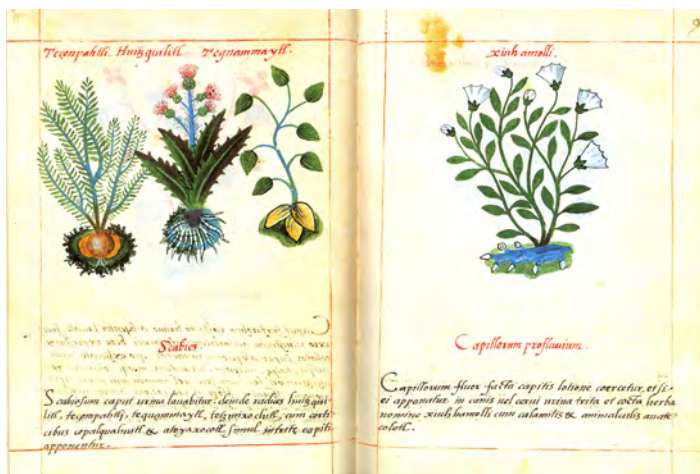 Teconpahtli. Huitzquilitl. Tequammaytl.
Scabies.
Scabiosum caput urina lauabitur. deinde radices huitzqui
litl, tecompahtli, tequammaytl, tetzmixochitl, cum corti
cibus copalquahuitl & atoyaxocotl simul capiti
apponentur.
9
xiuh amolli.
Capillorum profluuium.
Capillorum fluor facta capitis lotione coercetur, et si
ei apponatur in canis uel cerui urina trita et cocta herba
nomine xiuhhamolli cum calamitis & animalculis auate
colotl.